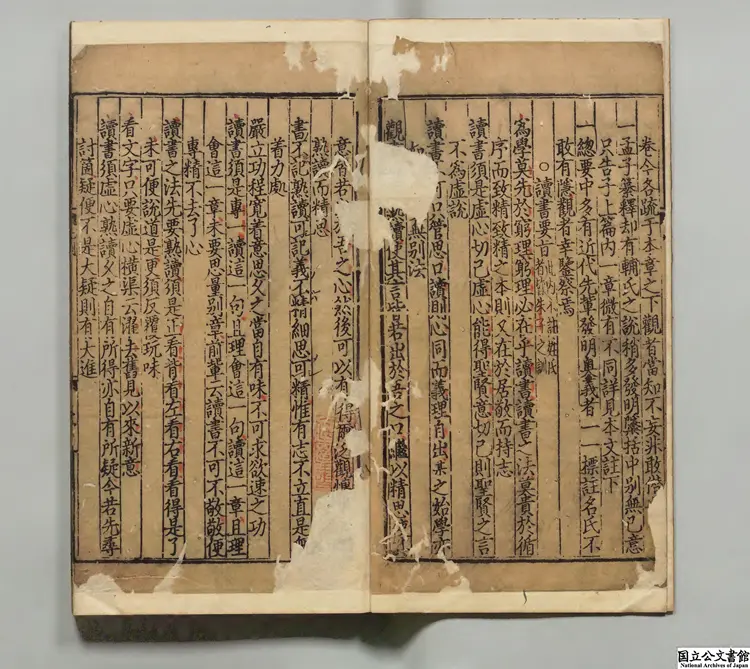 卷今各疏于本章之下觀者當知不妄非敢僭
一孟子纂釋却有輔氏之說稍多發明纂括中別無已意
只告子上篇內一章微有不同詳見本文註下
一總要中多有近代先輩發明奧義者一一標註名氏不
敢有隱觀者幸鑒察焉
○讀書要旨
爲學莫先於窮理窮理必在乎讀書讀書之法莫貴於循
序而致精致精之本則又在於居敬而持志
讀書須是虛心切己虛心能得聖賢意切己則聖賢之言
不爲虛說
讀書 口管思口讀則心同而義理自出 之始學亦
無別法
觀 熟讀使其言皆若出於吾之口繼以精思
意皆若 於吾之心然後可以有得爾
熟讀而精思
書不記熟讀可記義不精細思可精惟有志不立直是無
着力處
嚴立功程寬着意思久之當自有味不可求欲速之功
讀書須是專一讀這一句且理會這一句讀這一章且理
會這一章未要思量別章前輩云讀書不可不敬敬便
專精不去了心
讀書之法先要熟讀須是正看背看左看右看看得是了
未可便說道是更須反覆玩味
看文字只要虛心橫渠云濯去舊見以來新意
讀書須虛心熟讀久之自有所得亦自有所疑今若先尋
討箇疑便不是大疑則有大進
国立公文書館
National Archives of Japan